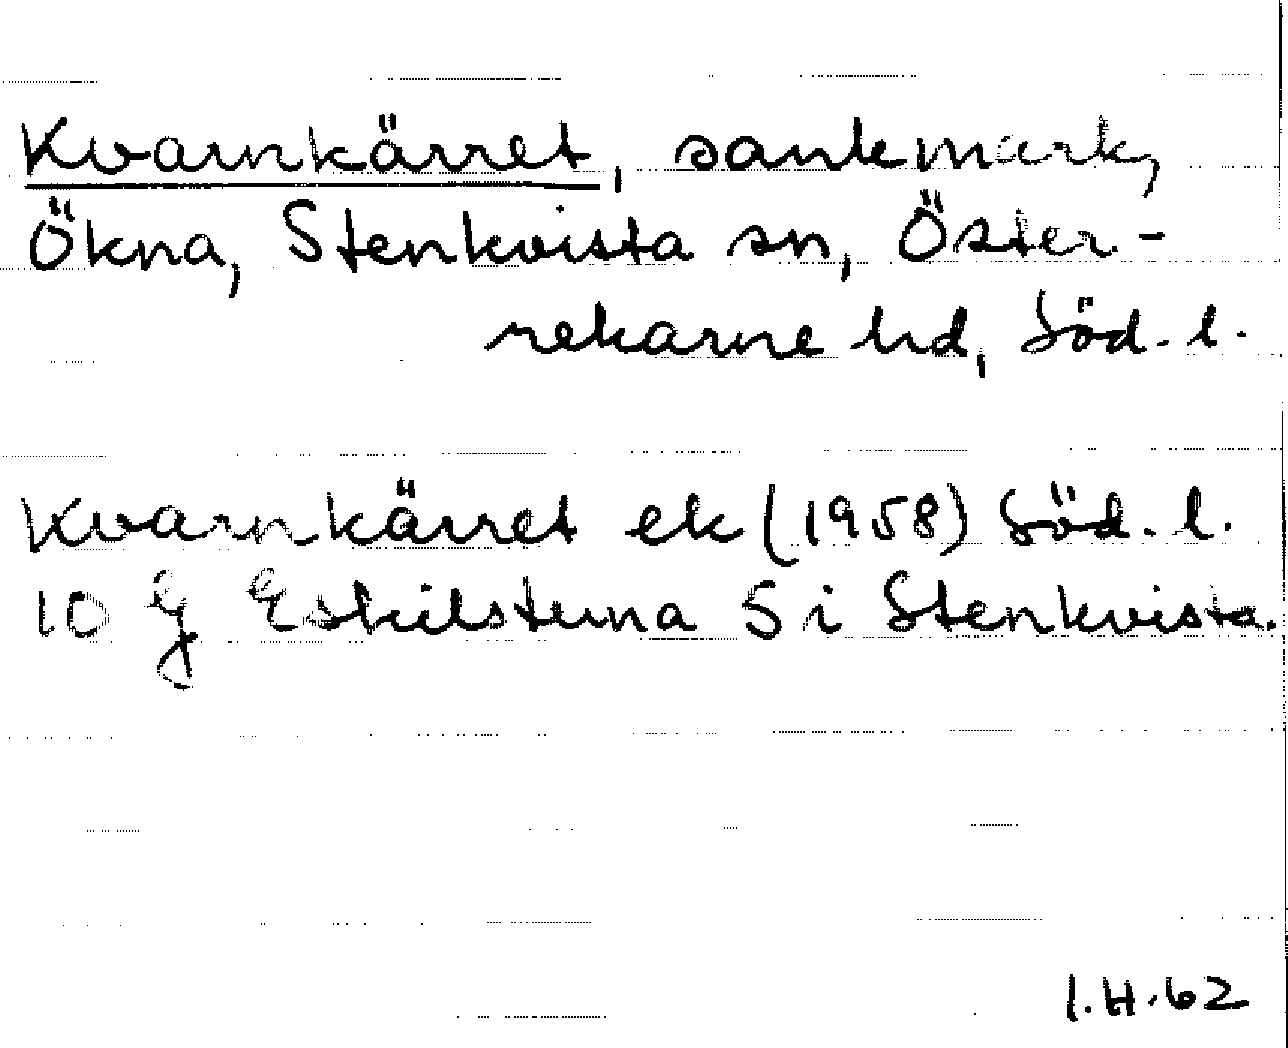 Kvarnkärret, sankmark,
Ökna, Stenkvista sn, Öster-
rekarne hd, Söd. l.
Kvarnkärret ek (1958) Söd. l.
10 g Eskilstuna 5 i Stenkvista.
I.H.62